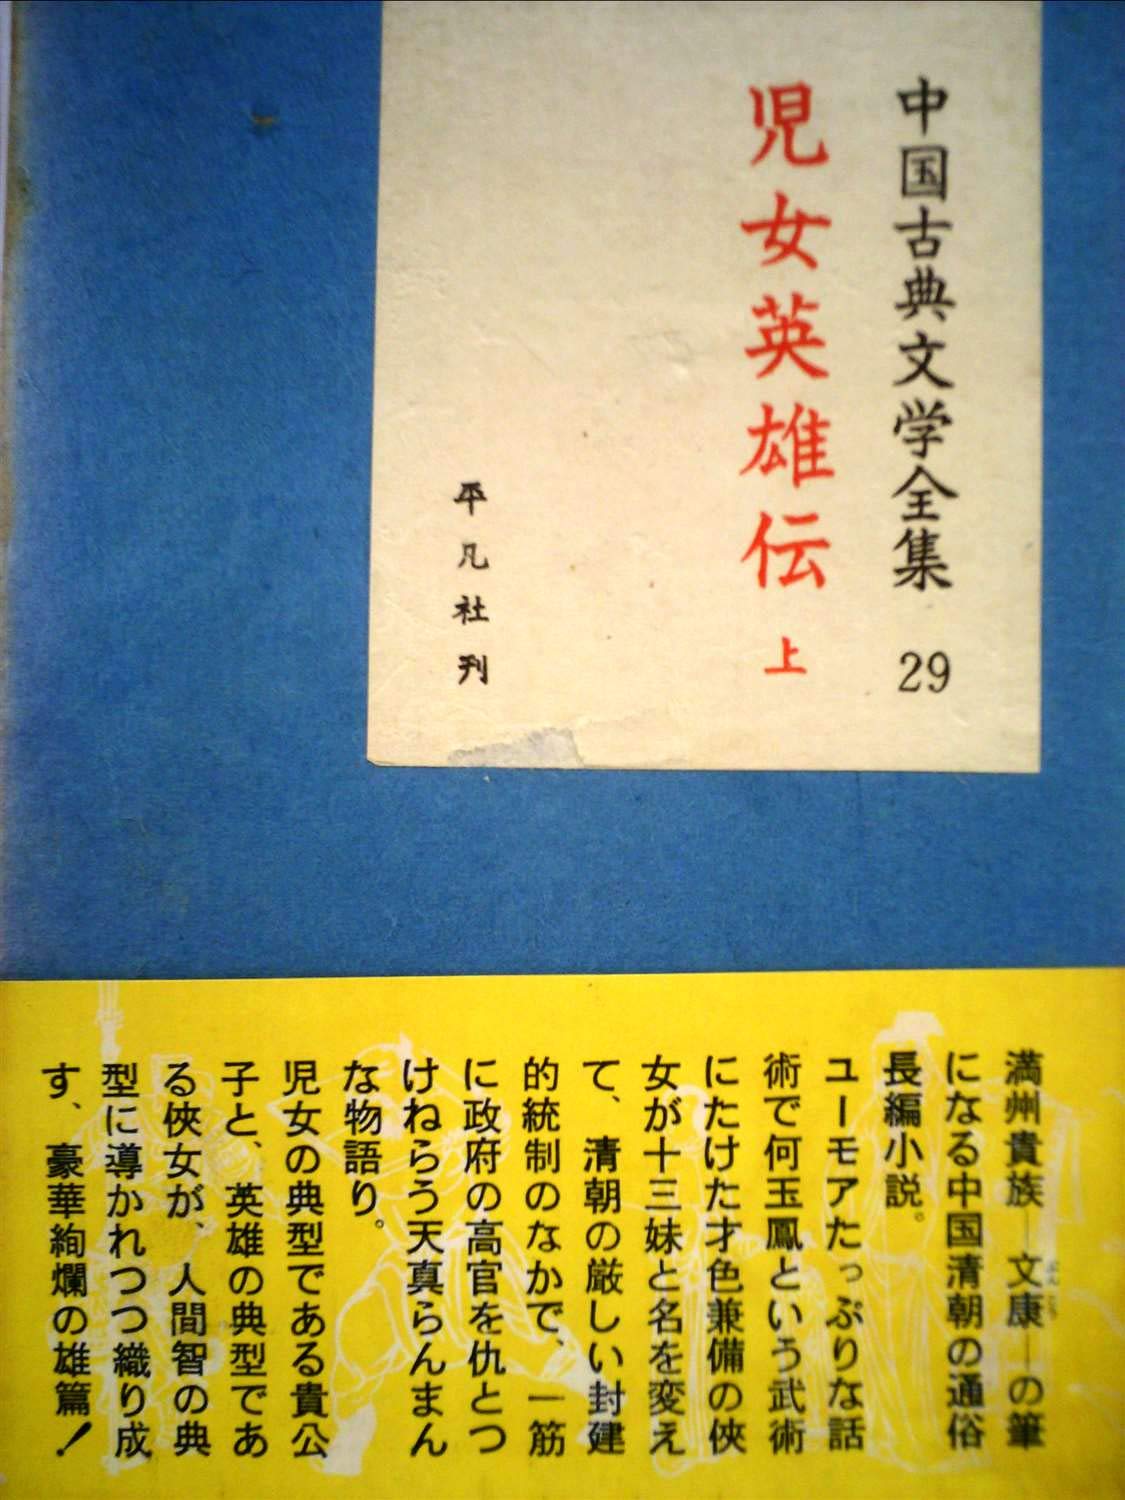 中国古典文学全集 29
児女英雄伝 上
平凡社刊
満州貴族―文康―の筆
になる中国清朝の通俗
長編小説。
ユーモアたっぷりな話
術で何玉鳳という武術
にたけた才色兼備の俠
女が十三妹と名を変え
て、清朝の厳しい封建
的統制のなかで、一筋
に政府の高官を仇とつ
けねらう天真らんまん
な物語り。
児女の典型である貴公
子と、英雄の典型であ
る俠女が、人間智の典
型に導かれつつ織り成
す、豪華絢爛の雄篇！